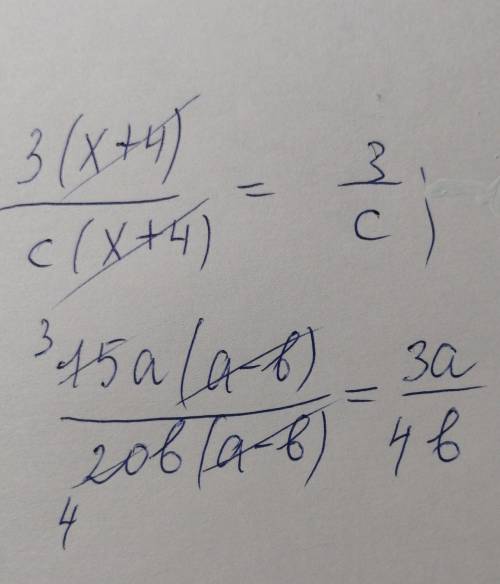 3(x+4)/c(x+4) = 3/c;
3 15a(a-b)/20b(a-b) 4 = 3a/4b